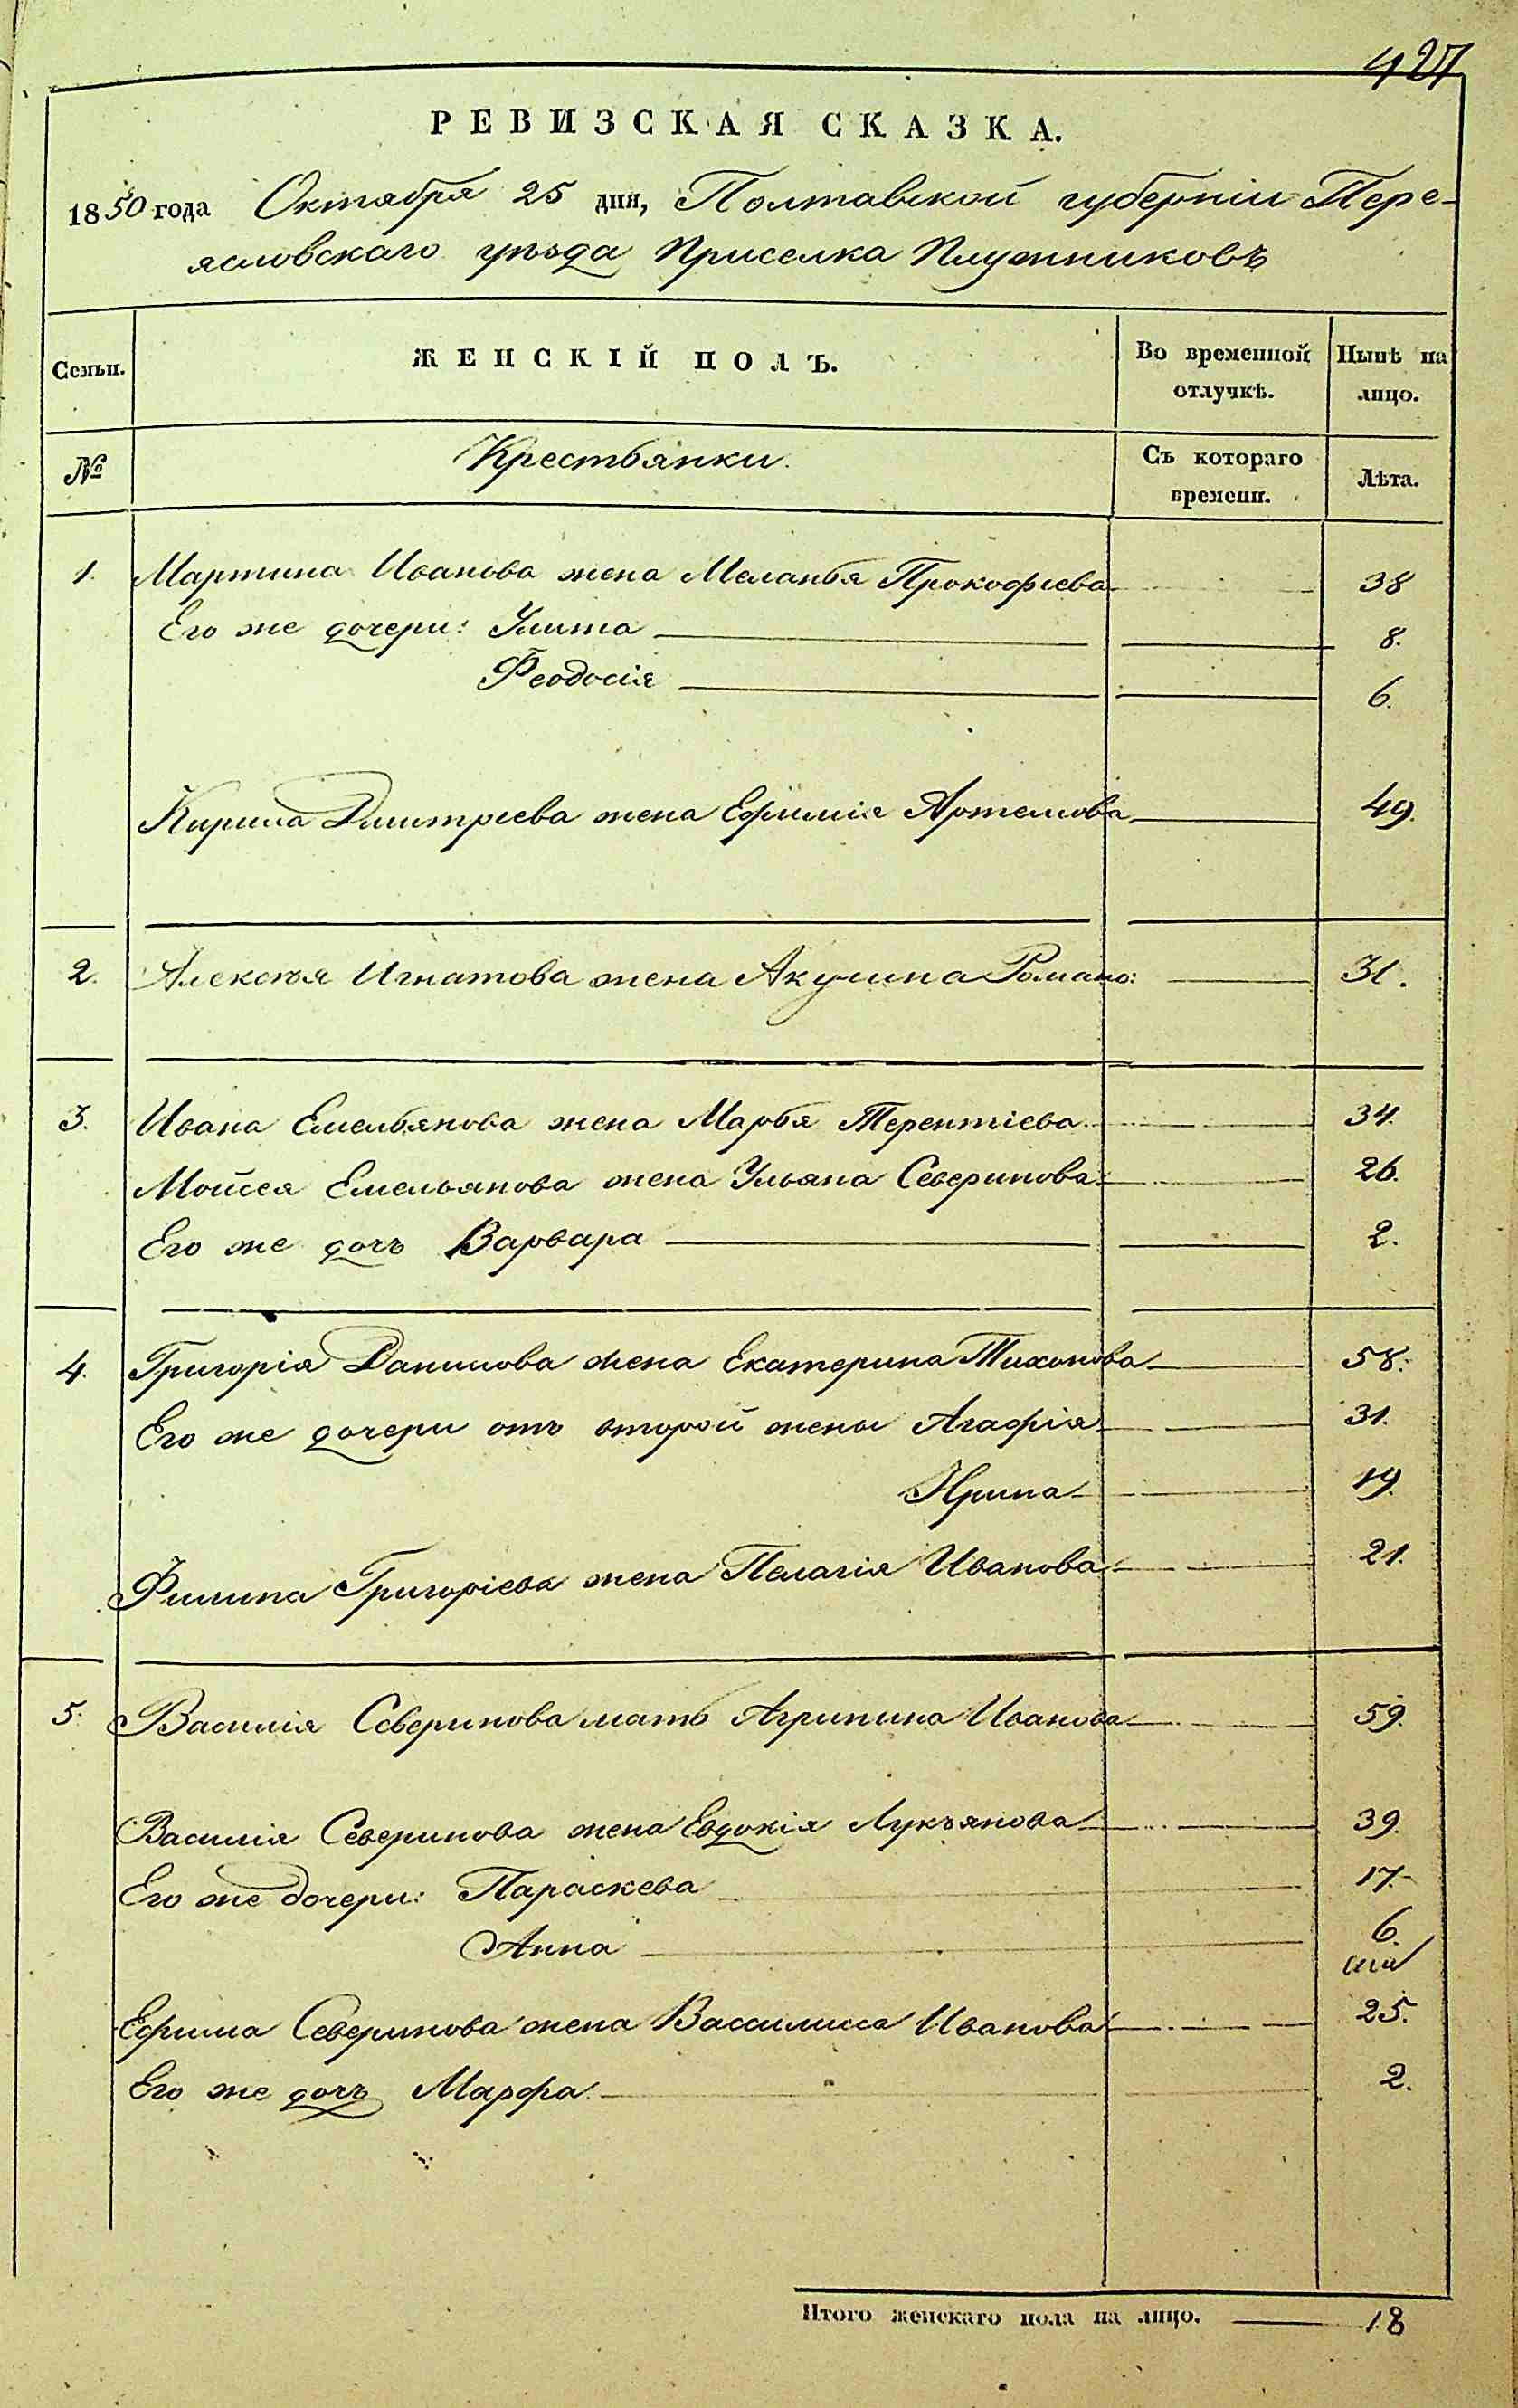 427
РЕВИЗСКАЯ СКАЗКА.
1850 года Октября 25 дня, Полтавской губерніи Пере-
ясловскаго уѣзда Приселка Плужниковъ
Семьи.
ЖЕНСКІЙ ПОЛЪ.
Во временной отлучкѣ.
Нынѣ на лицо.
№
Крестьянки.
Съ котораго времени.
Лѣта.
1. Мартина Иванова жена Меланья Прокофіева 38
Его же дочери: Улита 8.
Феодосія 6.
Кирила Дмитріева жена Ефимія Артемова 49.
2. Алексѣя Игнатова жена Акулина Романо: 31.
3. Ивана Емельянова жена Марья Терентіева 34.
Мойсея Емельянова жена Ульяна Северинова 26.
Его же дочь Варвара 2.
4. Григорія Данилова жена Екатерина Тихонова 58.
Его же дочери отъ второй жены Агафія 31.
Ирина 19.
Филипа Григоріева жена Пелагія Иванова 21.
5. Василія Северинова мать Агрипина Иванова 59.
Василія Северинова жена Евдокія Лукъянова 39.
Его же дочери: Параскева 17.
Анна 6.
Ефима Северинова жена Василиса Иванова 25.
Его же дочь Марфа 2.
Итого женскаго пола на лицо. 18